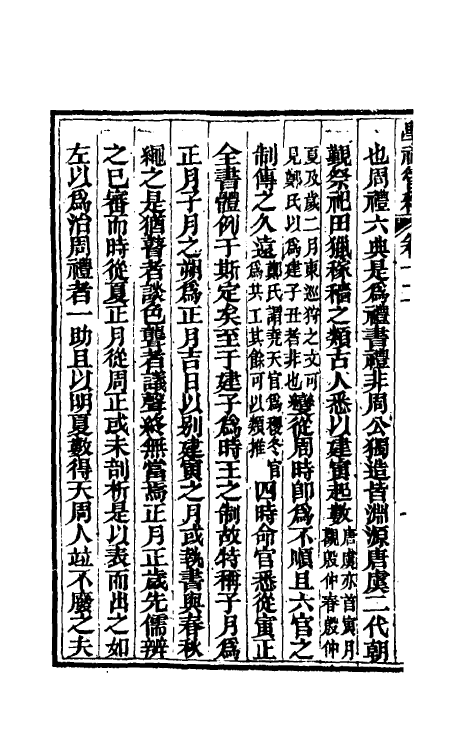 學禮管釋 卷十二
也周禮六典是爲禮書禮非周公獨造皆淵源唐虞二代朝
覲祭祀田獵稼穡之類古人悉以建寅起數唐虞亦首寅月觀殷仲春殷仲
夏及歲二月東巡狩之文可見鄭氏以爲建子丑者非也變從周時卽爲不順且六官之
制傳之久遠鄭氏謂堯天官爲稷冬官爲共工其餘可以類推四時命官悉從寅正
全書體例于斯定矣至于建子爲時王之制故特稱子月爲
正月子月之朔爲正月吉日以别建寅之月或執書與春秋
繩之是猶瞽者談色聾者議聲終無當焉正月正歲先儒辨
之已審而時從夏正月從周正或未剖析是以表而出之如
左以爲治周禮者一助且以明夏數得天周人竝不廢之夫